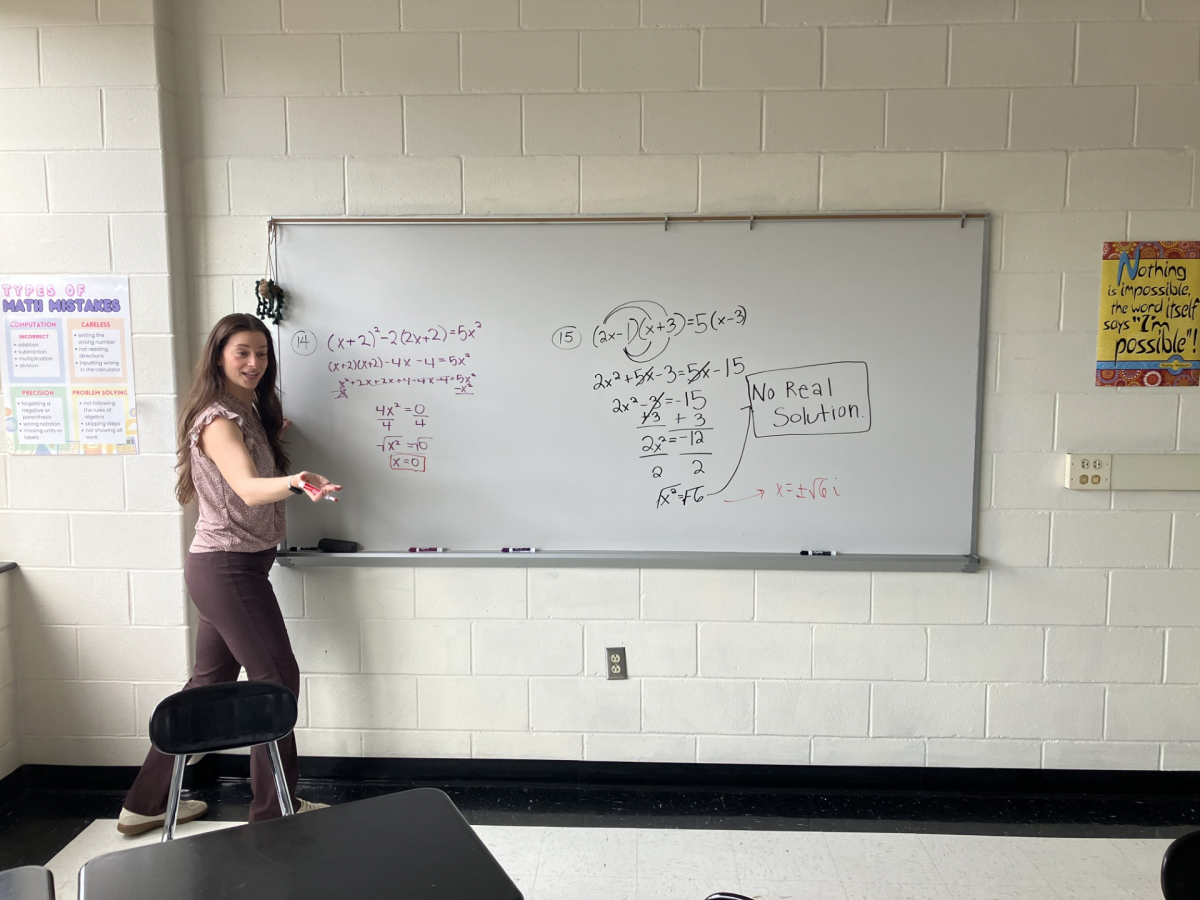 TYPES OF
MATH MISTAKES
COMPUTATION
INCORRECT
• addition
• subtraction
• multiplication
• division
CARELESS
• writing the
wrong number
• not reading
directions
• inputting wrong
in the calculator
PRECISION
• forgetting a
negative or
parenthesis
• wrong notation
• missing units or
labels
PROBLEM SOLVING
• not following
the rules of
algebra
• skipping steps
• not showing all
work
14 (x+2)²-2(2x+2)=5x²
(x+2)(x+2)-4x-4=5x²
x²+2x+2x+4-4x-4=5x²
-x² -x²
4x²=0
4 4
√x²=√0
x=0
15 (2x-1)(x+3)=5(x-3)
2x²+5x-3=5x-15
2x²-3=-15
+3 +3
2x²=-12
2 2
√x²=√-6
No Real
Solution.
x=±√6 i
Nothing
is impossible,
the word itself
says "I'm
possible"!